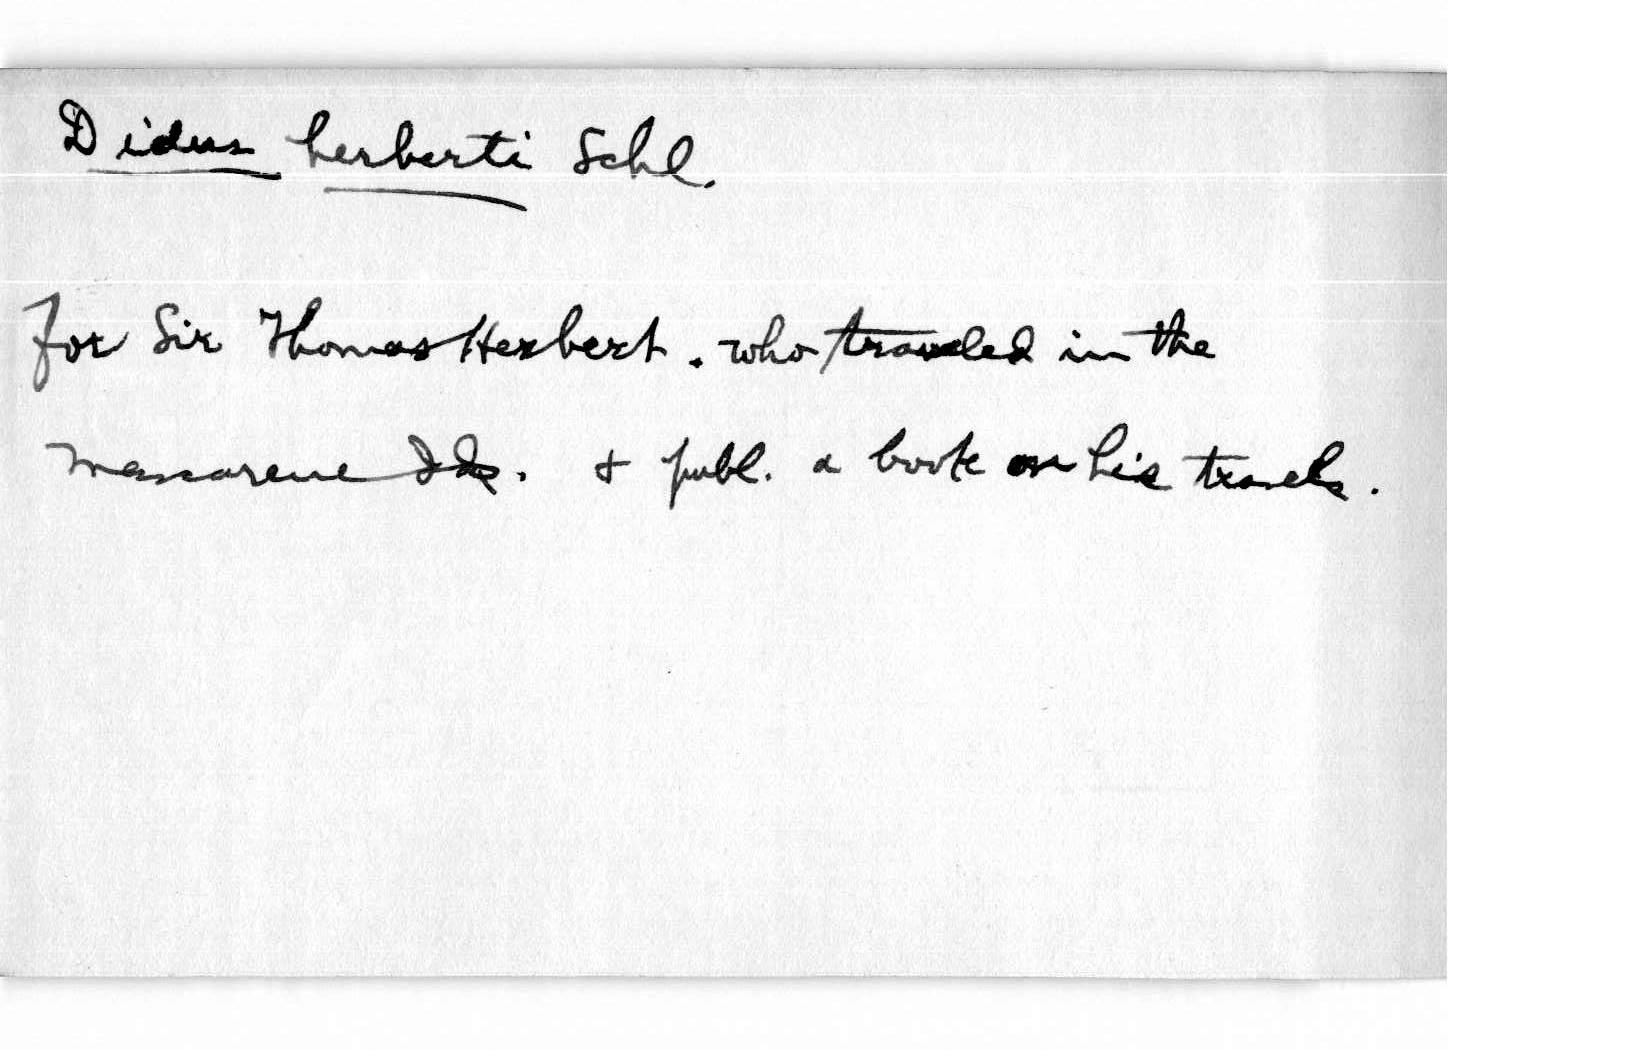 Didus herberti Schl.
for Sir Thomas Herbert. who traveled in the
Mascarene Ids. & publ. a book on his travels.